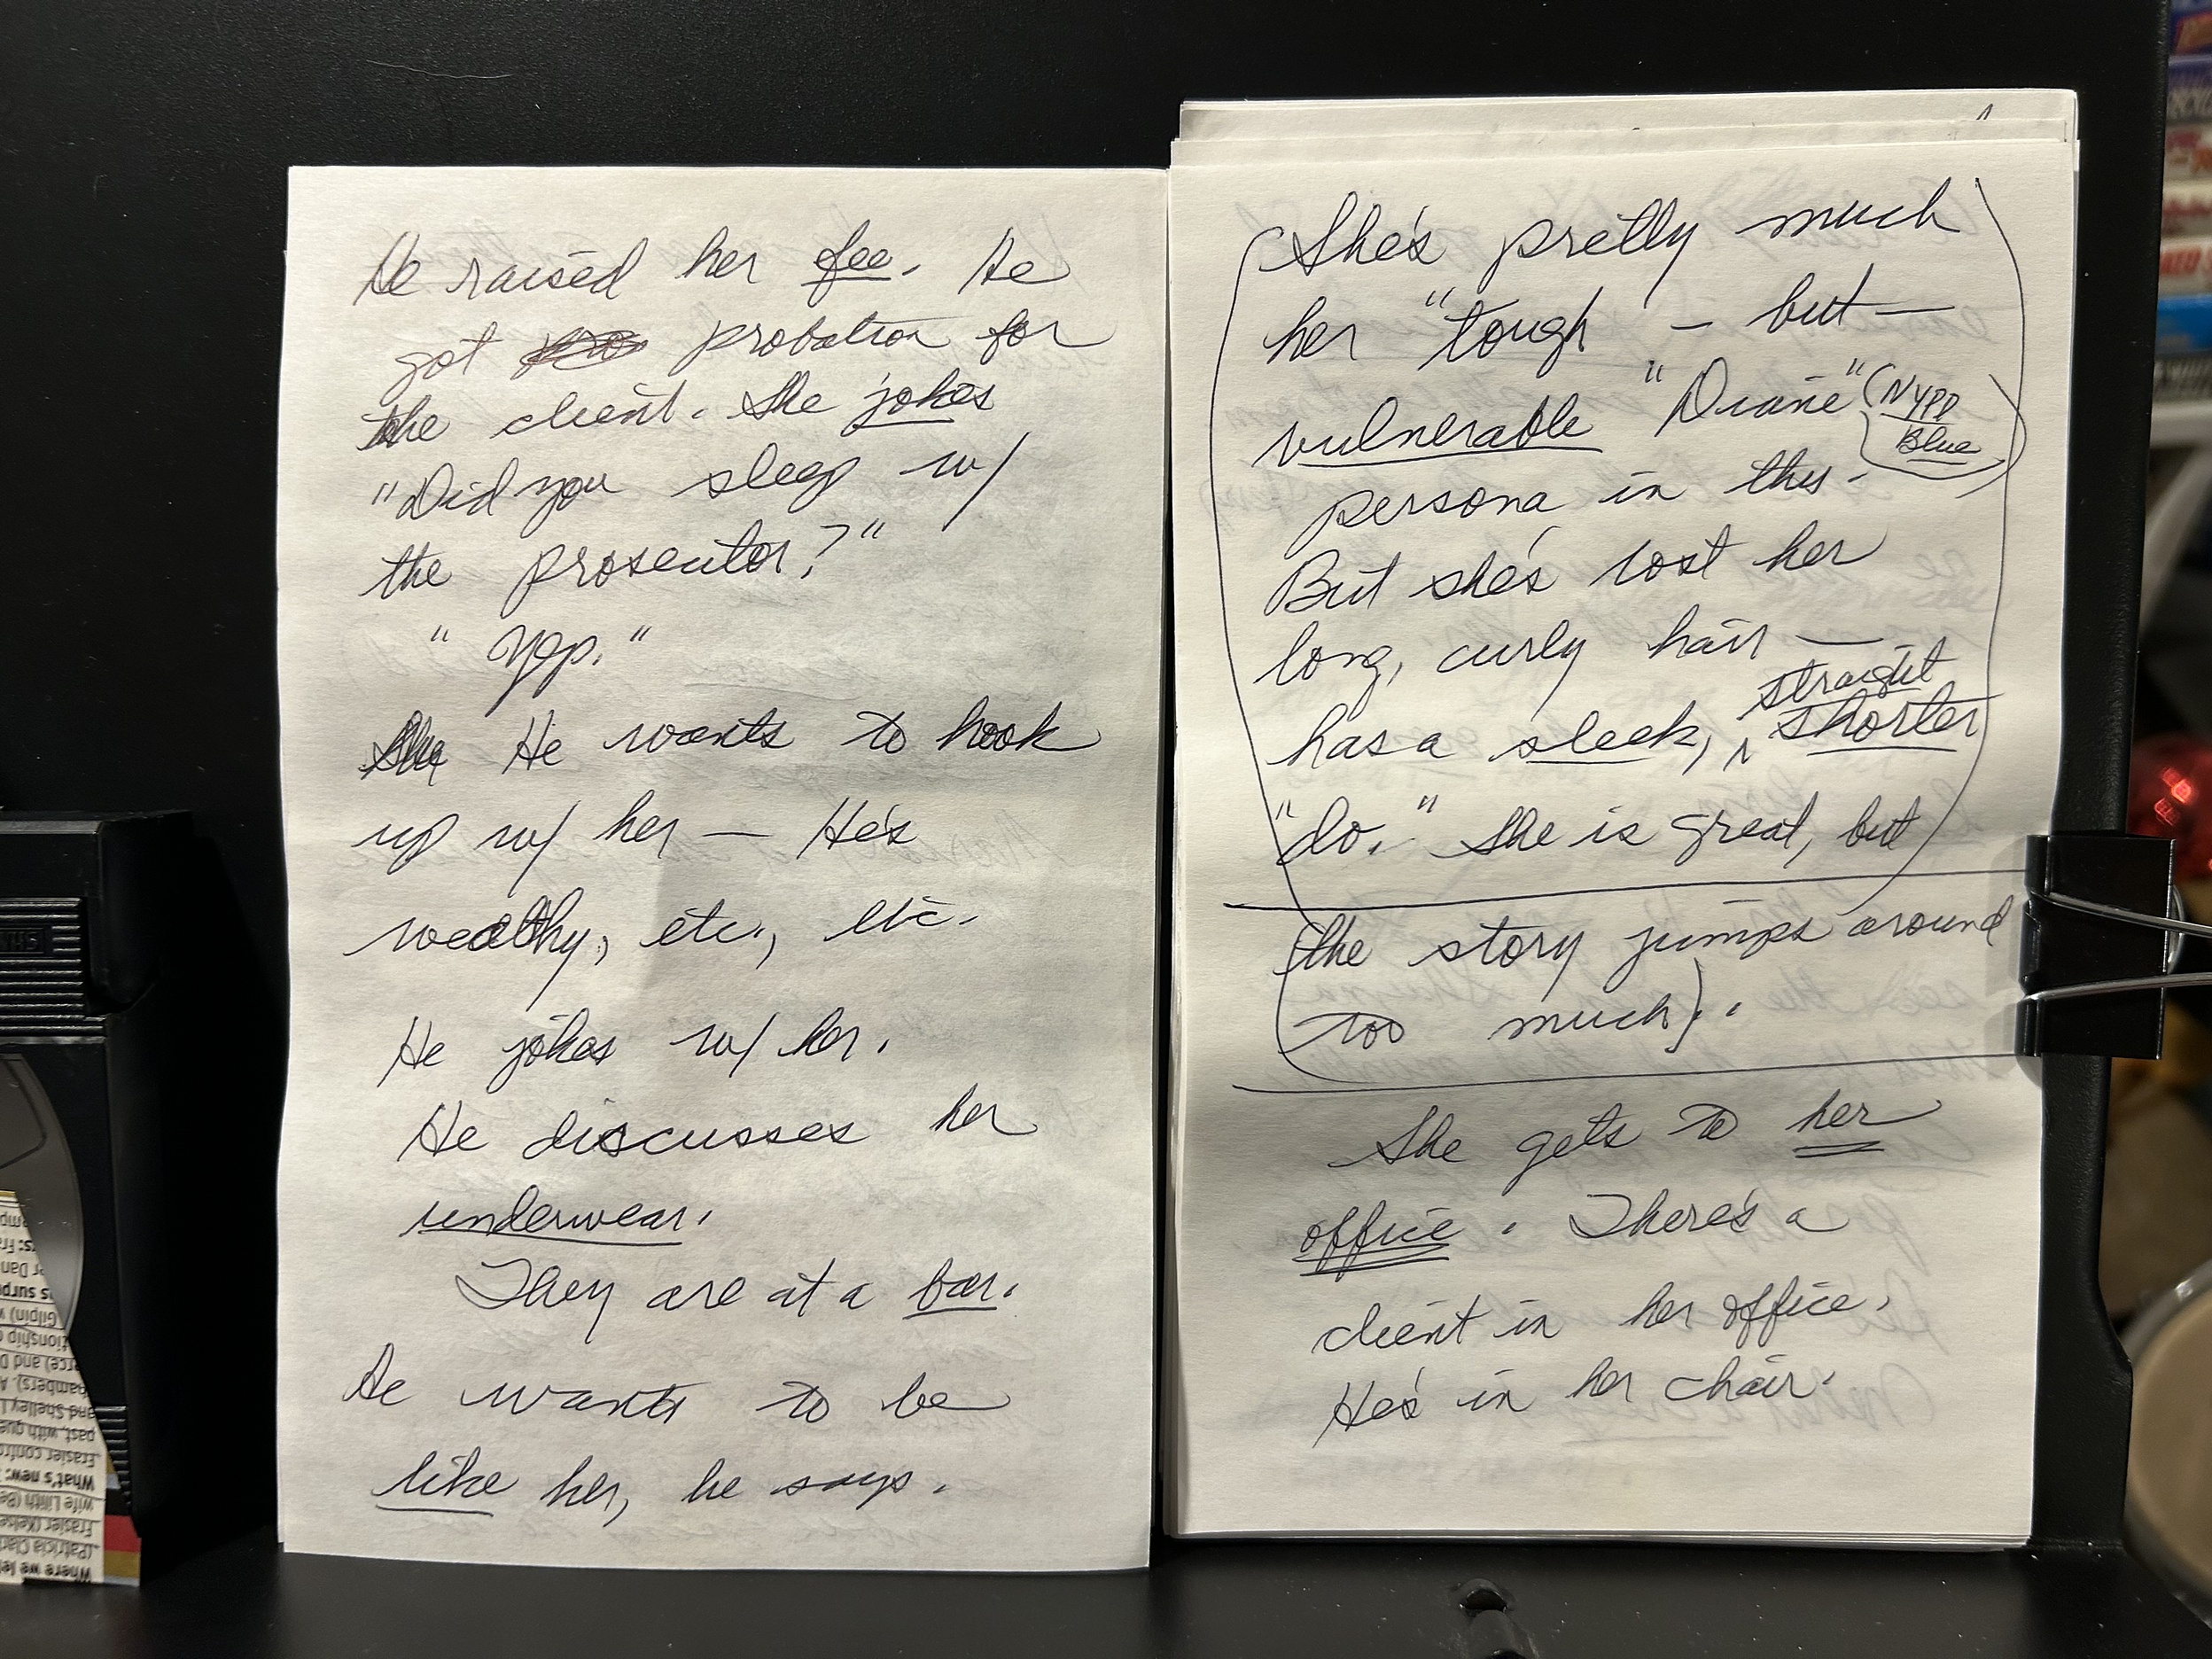 He raised her fee. He
got probation for
the client. She jokes
"Did you sleep w/
the prosecutor?"
"Yep."
She He wants to hook
up w/ her — He's
wealthy, etc., etc.
He jokes w/ her.
He discusses her
underwear.
They are at a bar.
He wants to be
like her, he says.
She's pretty much
her "tough — but —
vulnerable" "Diane" (NYPD
Blue)
persona in this.
But she's lost her
long, curly hair —
straight
has a sleek, ^ shorter
"do." She is great, but
(the story jumps around
too much).
She gets to her
office. There's a
client in her office.
He's in her chair.
VHS
Where we le
(Patricia Clar
Frasier (Kelse
wife Lilith (Be
What's new:
Frasier contro
past, with gue
and Shelley L